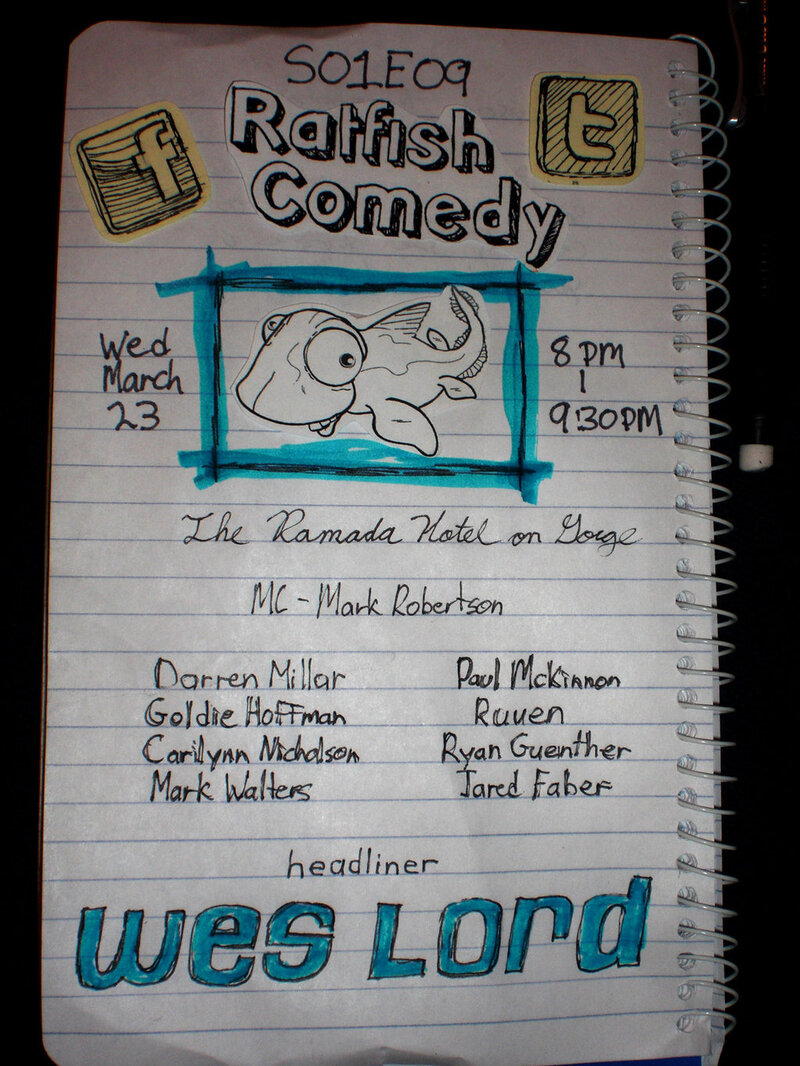 S01E09
f
t
Ratfish
Comedy
Wed
March
23
8 PM
|
9:30PM
The Ramada Hotel on Gorge
MC - Mark Robertson
Darren Millar
Paul McKinnon
Goldie Hoffman
Ruven
Carilynn Nicholson
Ryan Guenther
Mark Walters
Jared Faber
headliner
Wes Lord